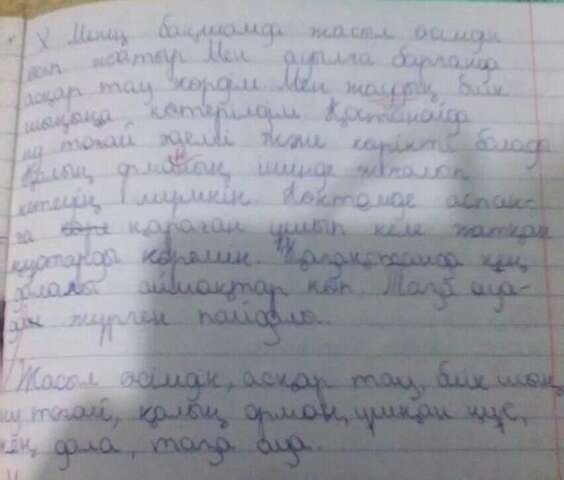 Менің бақшамда жасыл өсімдік
өсіп жатыр Мен ауылға барғанда
асқар тау көрем Мен таудың биік
шыңына көтерілдім Қостанайда
ну тоғай әдемі және көрікті болады
Қалың орманың ішінде жоғалып
кетуің мүмкін Көктемде аспан-
ға қараған ұшып келе жатқан
құстарды көремін. Қазақстанда кең
далалы аймақтар көп. Таза ауа-
да жүрген пайдалы.
Жасыл өсімдік, асқар тау, биік шың,
ну тоғай, қалың орман, ұшқан құс,
кең дала, таза ауа.